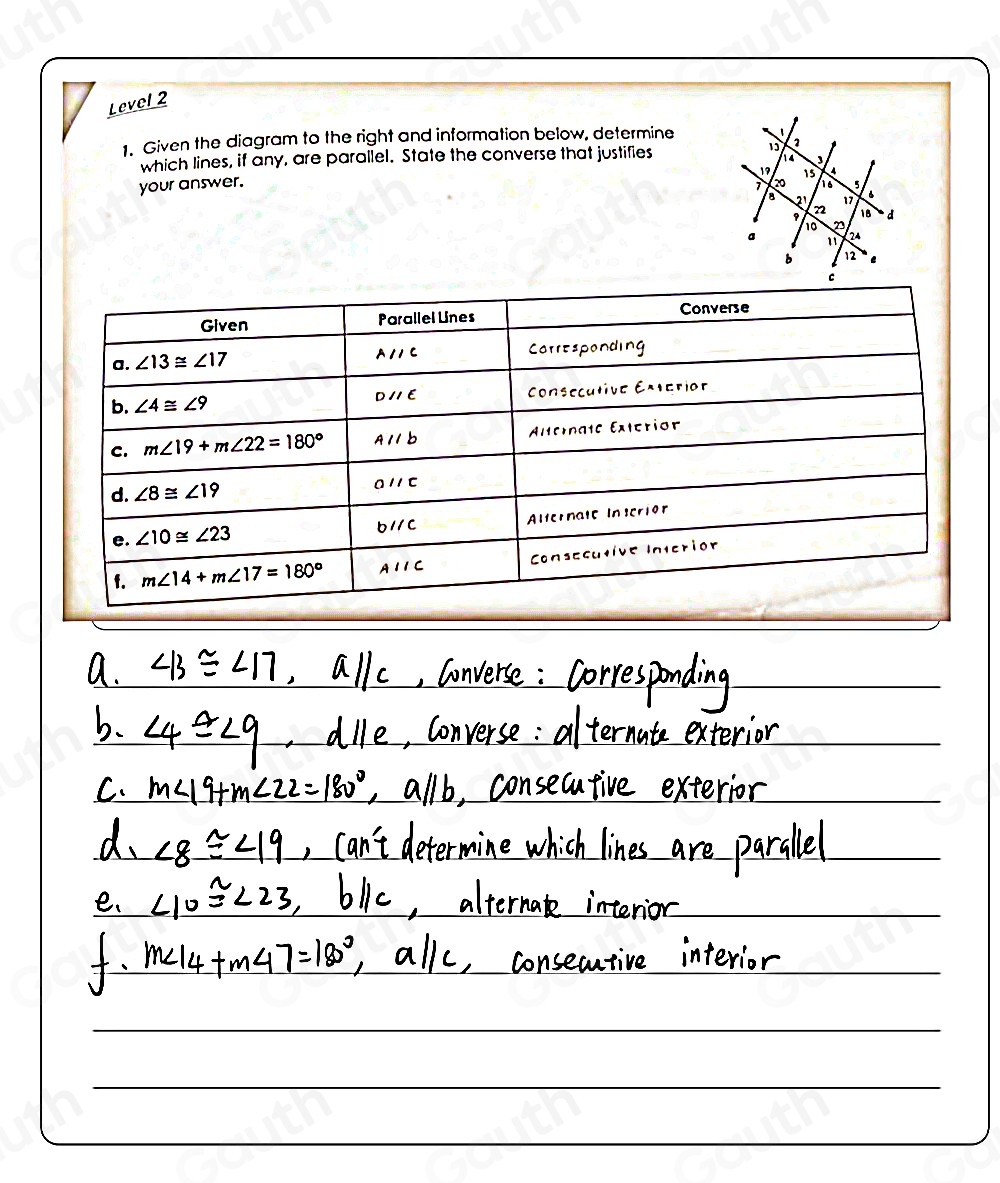 Level 2
1. Given the diagram to the right and information below, determine
which lines, if any, are parallel. State the converse that justifies
your answer.
1 2
13 14
3 4
15 16
19
7 20
8
5 6
17 18
21 22
9 10
23 24
11 12
a b c d e
Given Parallel Lines Converse
a. ∠13 ≅ ∠17 A // C Corresponding
b. ∠4 ≅ ∠9 D // E Consecutive Exterior
c. m∠19 + m∠22 = 180° A // b Alternate Exterior
d. ∠8 ≅ ∠19 a // c
e. ∠10 ≅ ∠23 b // c Alternate Interior
f. m∠14 + m∠17 = 180° A // C Consecutive Interior
a. ∠13 ≅ ∠17, a//c, Converse: Corresponding
b. ∠4 ≅ ∠9, d//e, Converse: alternate exterior
C. m∠19+m∠22=180°, a//b, consecutive exterior
d. ∠8 ≅ ∠19, can't determine which lines are parallel
e. ∠10 ≅ ∠23, b//c, alternate interior
f. m∠14+m∠17=180°, a//c, consecutive interior
Gauth